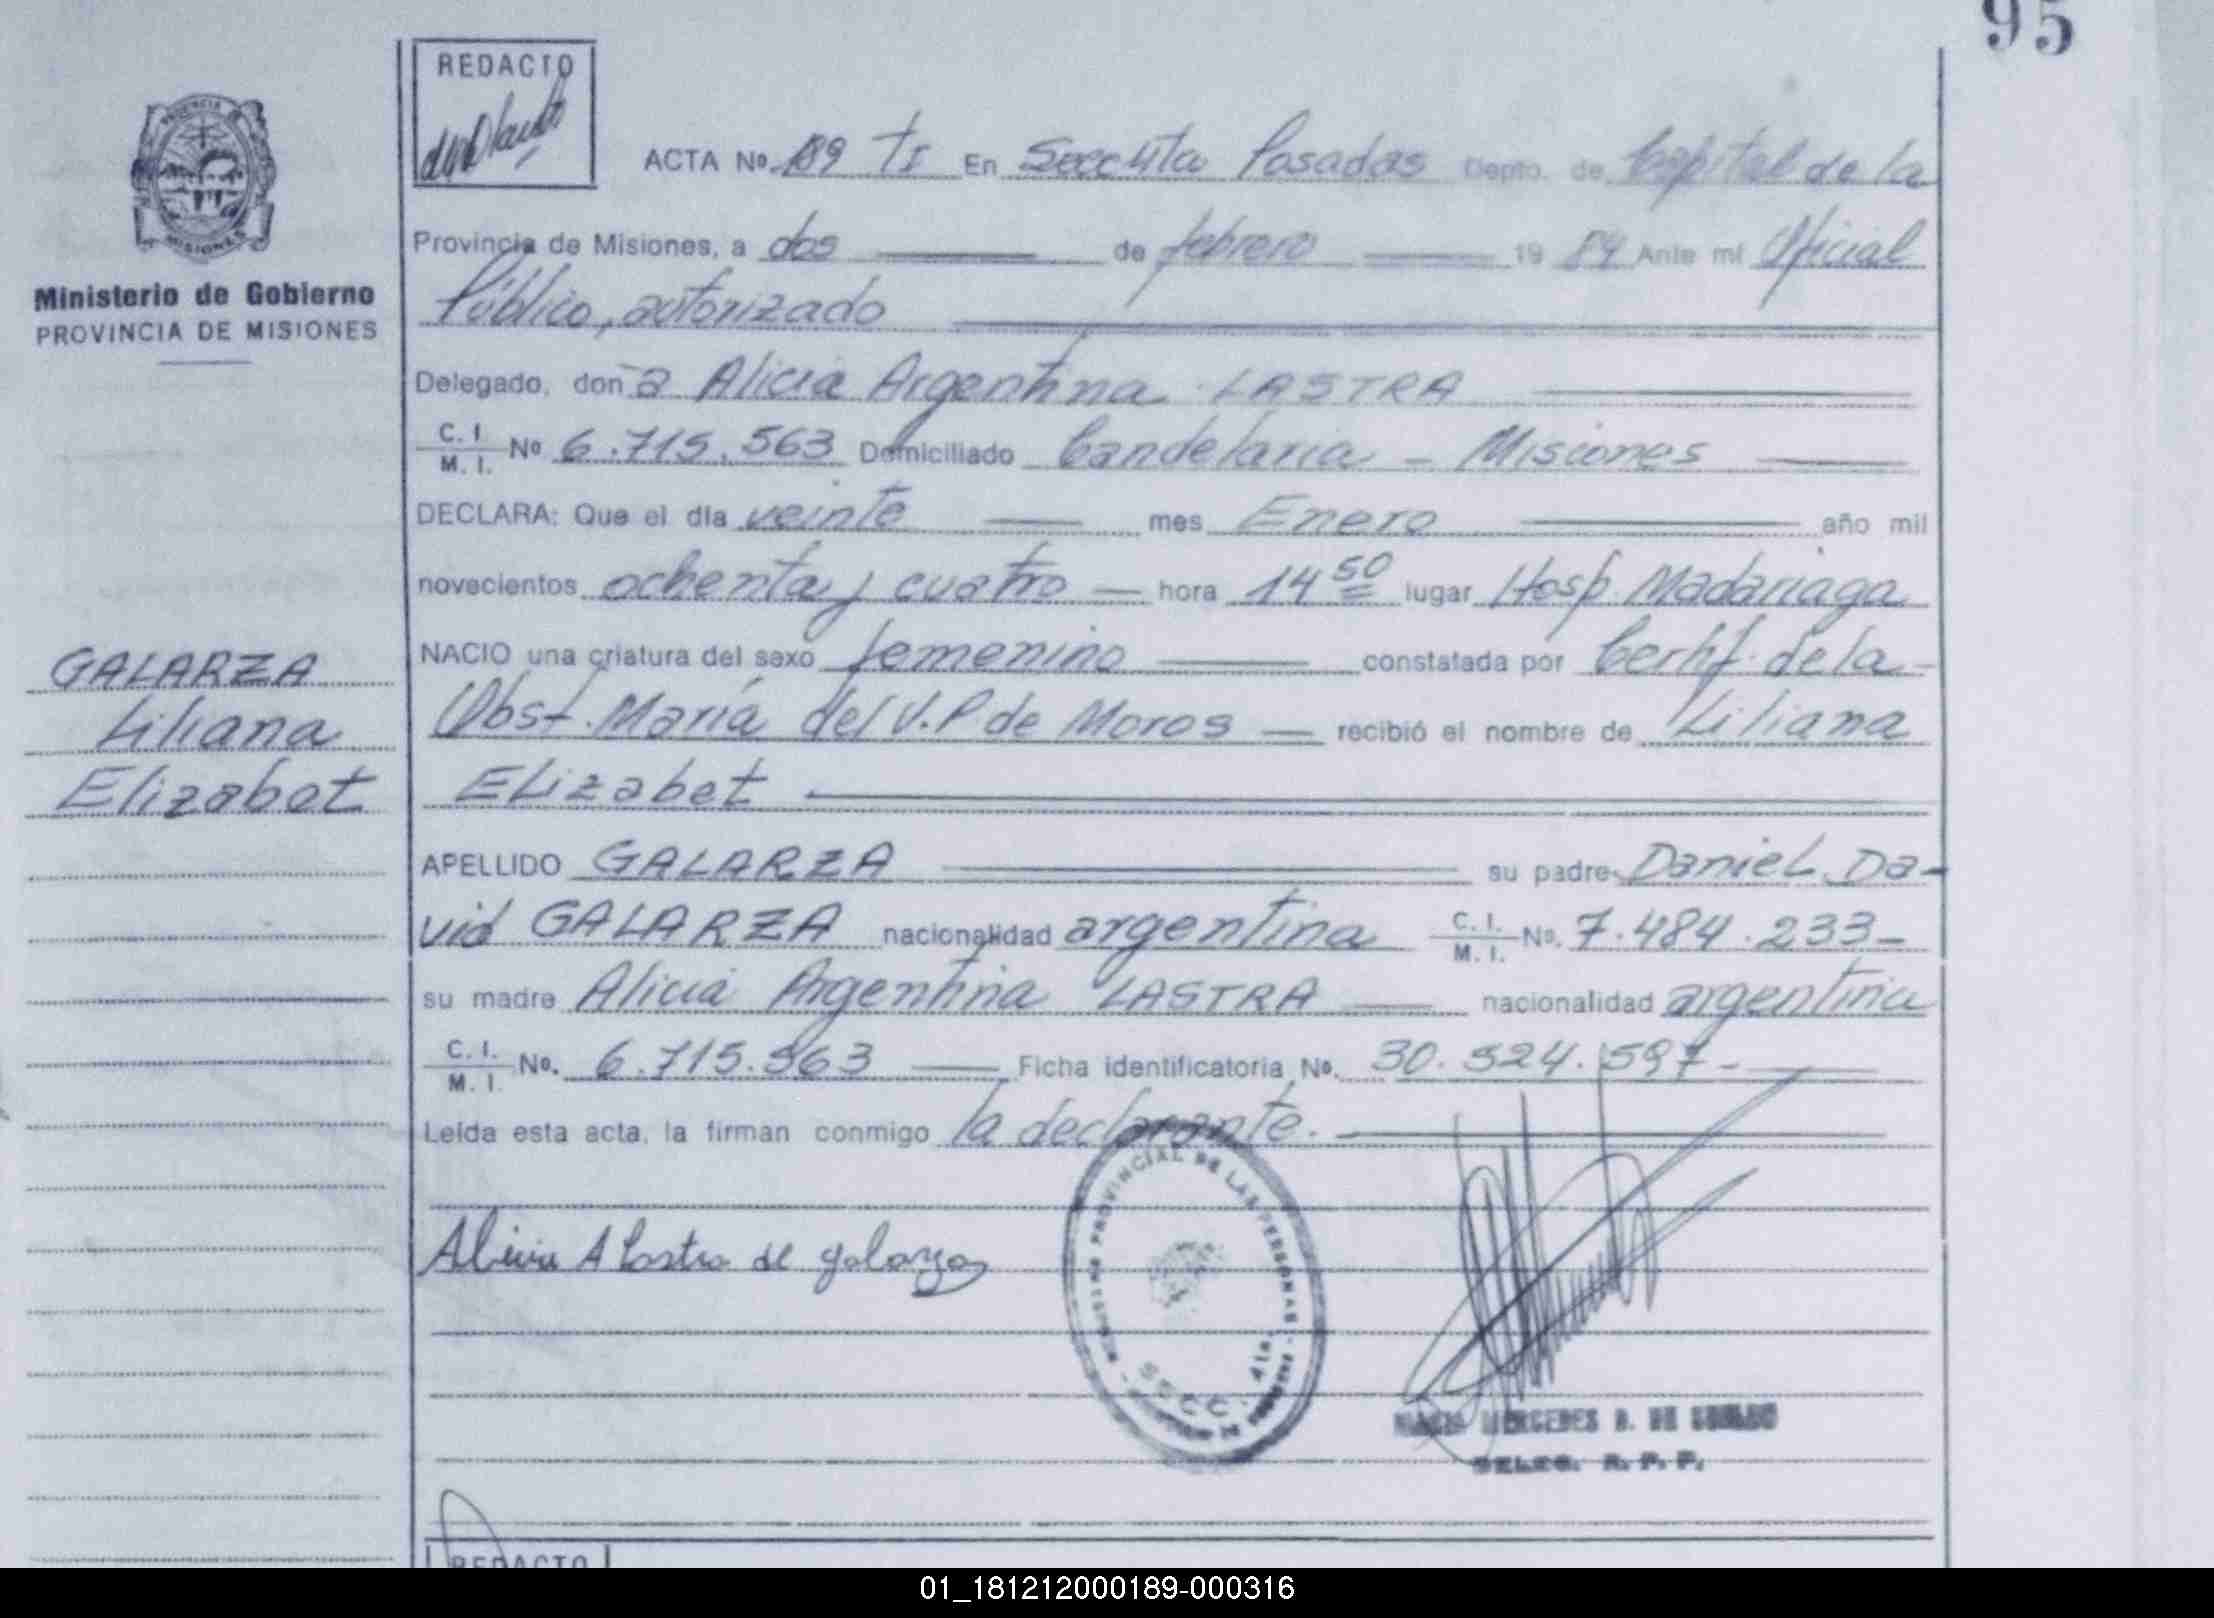 95
REDACTO
ACTA No. 189 TI En Secc 4ta Posadas Depto. de Capital de la
Provincia de Misiones, a dos de febrero 19 84 Ante mi Oficial
Público, autorizado
Delegado, don a Alicia Argentina LASTRA
C. I. M. I. No 6.715.563 Domiciliado Candelaria - Misiones
DECLARA: Que el dia veinte mes Enero año mil
novecientos ochenta y cuatro hora 14 50 lugar Hosp. Madariaga
NACIO una criatura del sexo femenino constatada por Certif. de la
Obst. María del V. P de Moros recibió el nombre de Liliana
Elizabet
APELLIDO GALARZA su padre Daniel Da-
vid GALARZA nacionalidad argentina C. I. M. I. No. 7.484.233-
su madre Alicia Argentina LASTRA nacionalidad argentina
C. I. M. I. No. 6.715.563 Ficha identificatoria No. 30.524.597-
Leida esta acta, la firman conmigo la declarante.
Alicia A Lastra de galarza
PROVINCIAL DE LAS PERSONAS
SECC. 4ta.
MERCEDES B. DE
DELEG. R. P. P.
REDACTO
Ministerio de Gobierno
PROVINCIA DE MISIONES
GALARZA
Liliana
Elizabet
01_181212000189-000316